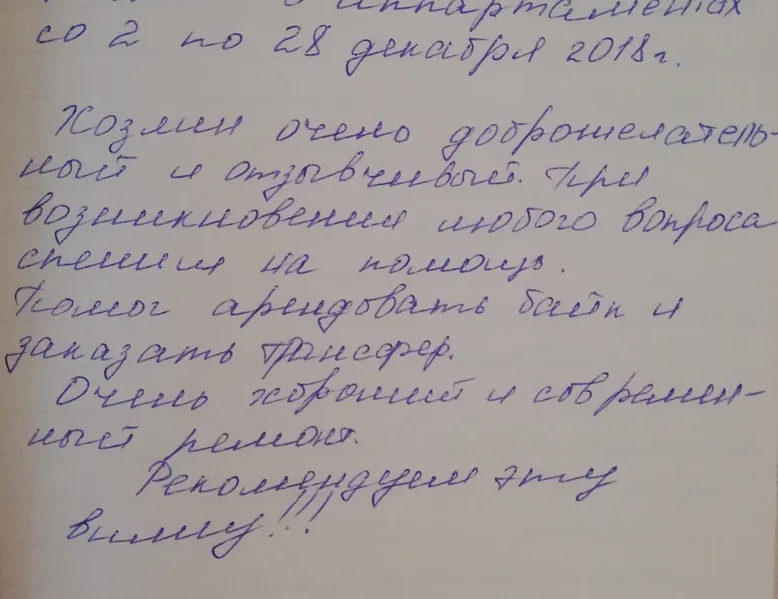 в аппартаментах
со 2 по 28 декабря 2018 г.
Хозяин очень доброжелатель-
ный и отзывчивый. При
возникновении любого вопроса
спешил на помощь.
Помог арендовать байк и
заказать трансфер.
Очень хороший и современ-
ный ремонт.
Рекомендуем эту
виллу!!!